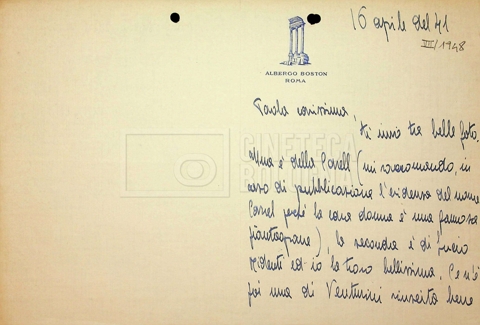 16 aprile del 41
III/1948
ALBERGO BOSTON
ROMA
CINETECA
BOLOGNA
Paola carissima,
ti invio tre belle foto.
Una è della Carell (mi raccomando, in
caso di pubblicazione l'evidenza del nome
Carrel perché la cara donna è una famosa
piantagrane), la seconda è di
Ridenti ed io la trovo bellissima. Ce n'è
poi una di Venturini riuscita bene